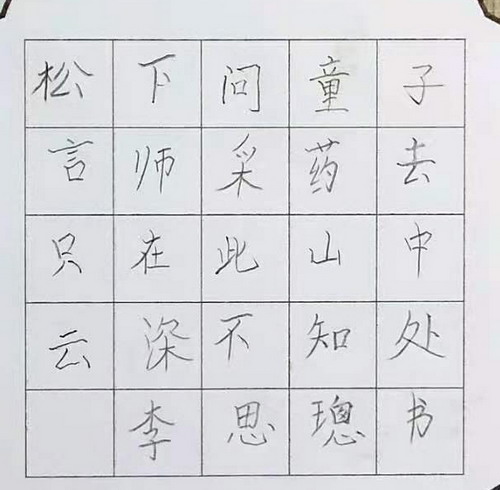 松下问童子
言师采药去
只在此山中
云深不知处
李思璁书